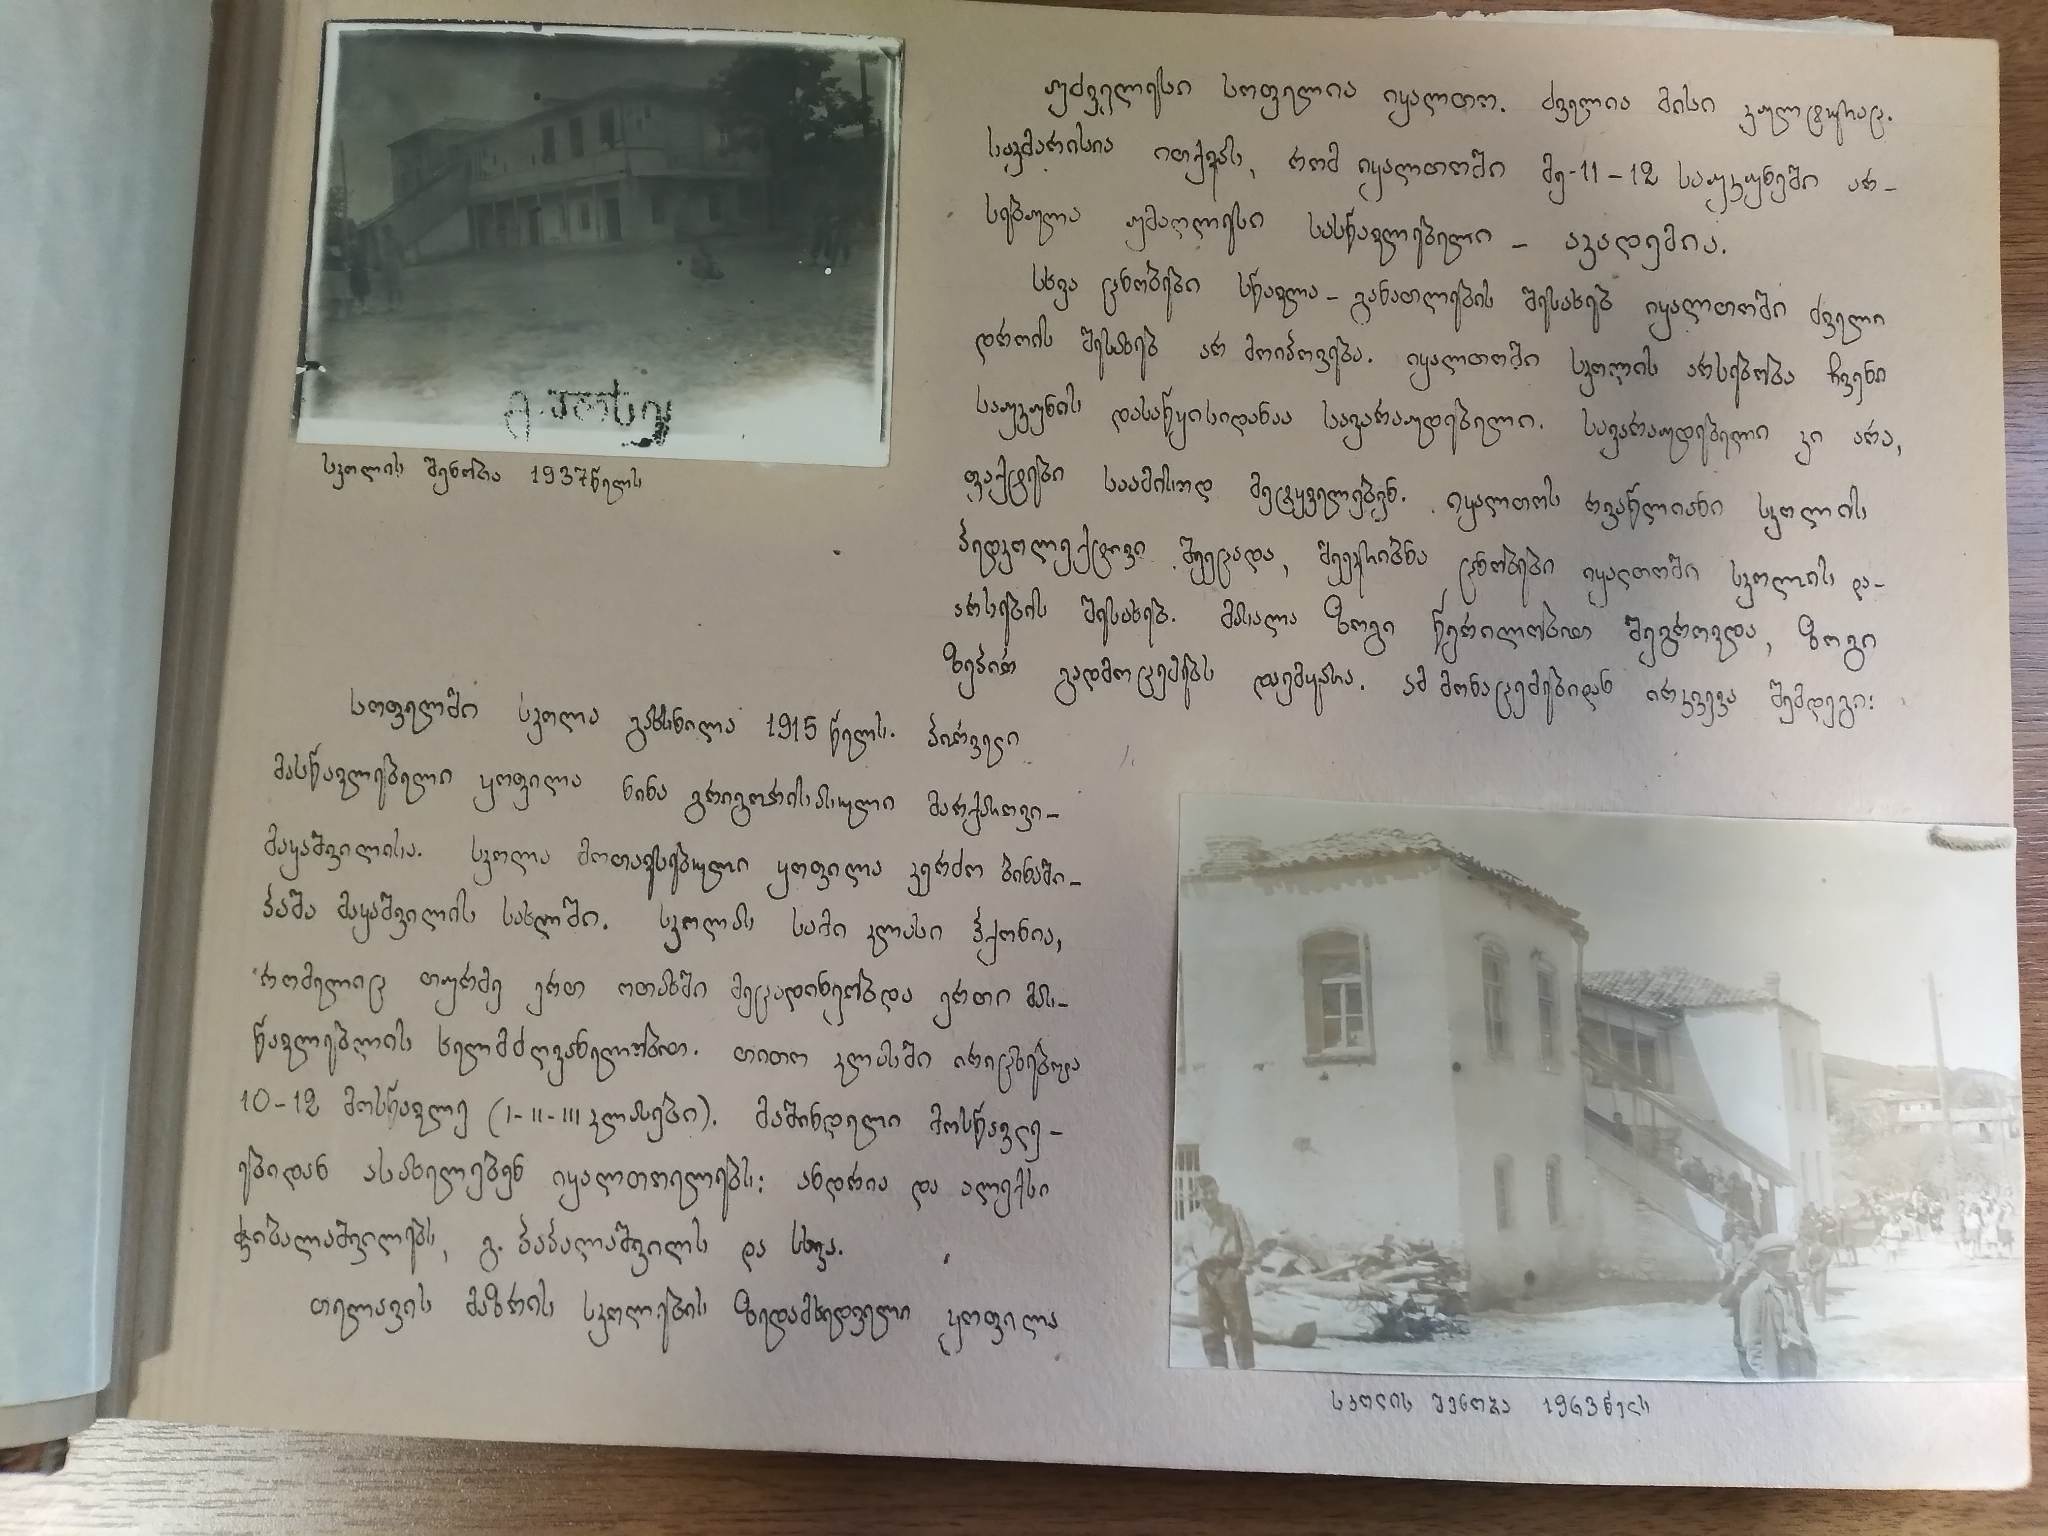 უძველესი სოფელია იყალთო. ძველია მისი კულტურაც.
საკმარისია ითქვას, რომ იყალთოში მე-11-12 საუკუნეში არ-
სებულა უმაღლესი სასწავლებელი - აკადემია.
სხვა ცნობები სწავლა-განათლების შესახებ იყალთოში ძველი
დროის შესახებ არ მოიპოვება. იყალთოში სკოლის არსებობა ჩვენი
საუკუნის დასაწყისიდანაა სავარაუდებელი. სავარაუდებელი კი არა,
ფაქტები საამისოდ მეტყველებენ. იყალთოს რვაწლიანი სკოლის
პედკოლექტივი შეეცადა, შეეკრიბნა ცნობები იყალთოში სკოლის და-
არსების შესახებ. მასალა ზოგი წერილობით შეგროვდა, ზოგი
ზეპირ გადმოცემებს დაემყარა. ამ მონაცემებიდან ირკვევა შემდეგი:
სკოლის შენობა 1937 წელს
სოფელში სკოლა გახსნილა 1915 წელს. პირველი
მასწავლებელი ყოფილა ნინა გრიგორისასული მარქაროვი-
მაყაშვილისა. სკოლა მოთავსებული ყოფილა კერძო ბინაში-
პაშა მაყაშვილის სახლში. სკოლას სამი კლასი ჰქონია,
რომელიც თურმე ერთ ოთახში მეცადინეობდა ერთი მას-
წავლებლის ხელმძღვანელობით. თითო კლასში ირიცხებოდა
10-12 მოსწავლე (I-II-III კლასები). მაშინდელი მოსწავლე-
ებიდან ასახელებენ იყალთოელებს: ანდრია და ალექსი
ჭიბალაშვილებს, გ. პაპალაშვილს და სხვა.
თელავის მაზრის სკოლების ზედამხედველი ყოფილა
სკოლის შენობა 1963 წელს